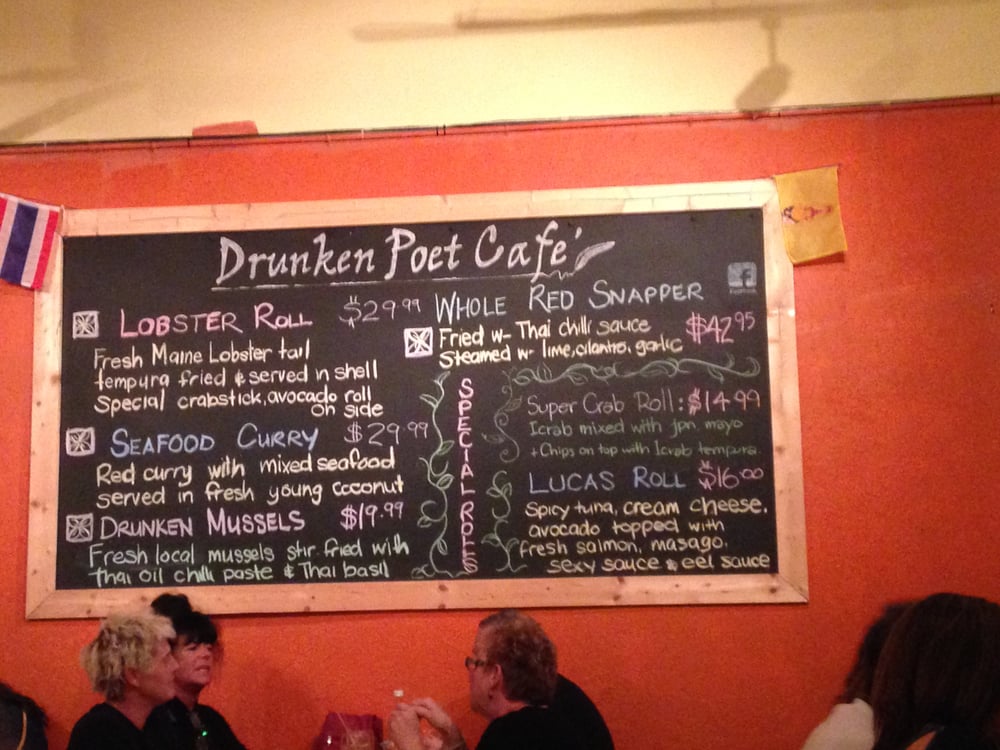 Drunken Poet Café
LOBSTER ROLL $29.99
Fresh Maine Lobster tail
tempura fried & served in shell
Special crabstick, avocado roll
on side
SEAFOOD CURRY $29.99
Red curry with mixed seafood
served in fresh young coconut
DRUNKEN MUSSELS $19.99
Fresh local mussels stir fried with
Thai oil chilli paste & Thai basil
WHOLE RED SNAPPER
Fried w- Thai chilli sauce $42.95
Steamed w- lime, cilantro, garlic
SPECIAL ROLLS
Super Crab Roll: $14.99
1crab mixed with jpn mayo
+ Chips on top with 1crab tempura
LUCAS ROLL $16.00
Spicy tuna, cream cheese,
avocado topped with
fresh salmon, masago,
sexy sauce & eel sauce